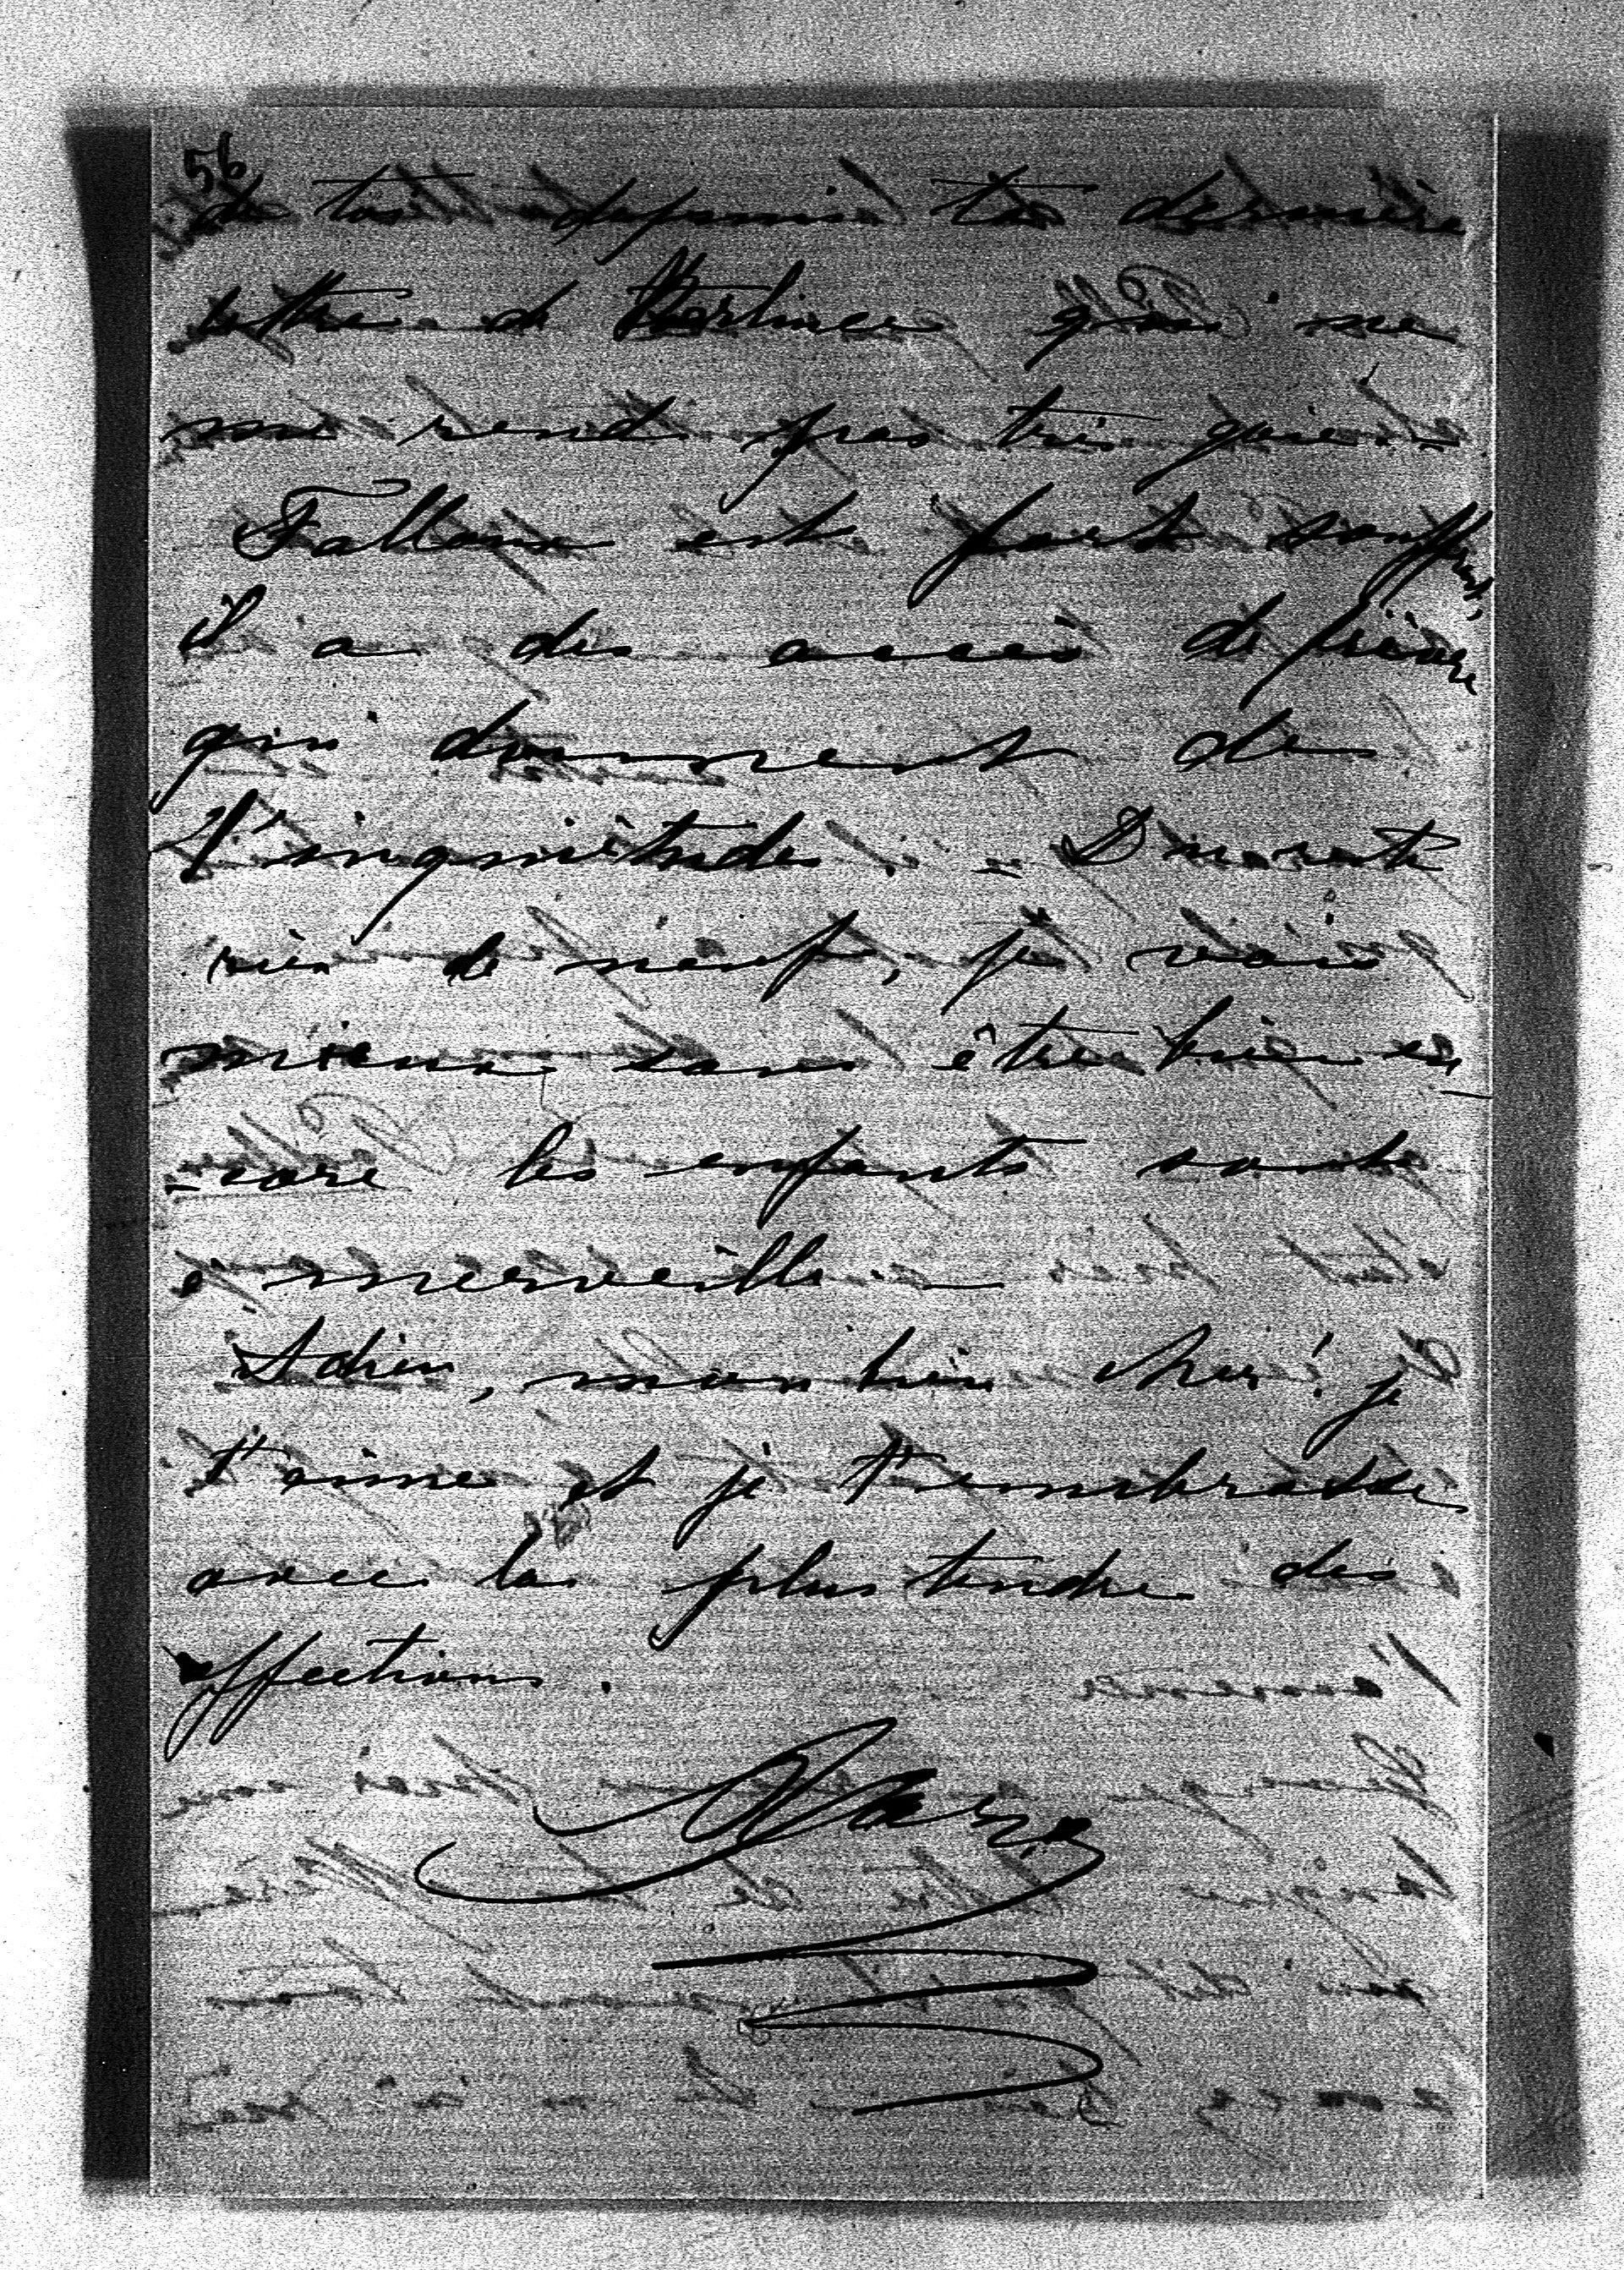 56
de toi depuis ta dernière
lettre de qui ne
me rend pas très gaie. —
Falloux est fort souffrant,
il a des accès de fièvre
qui donnent de
l'inquiétude. — Du reste
rien de neuf, je vais
mieux sans être bien en
-core les enfants vont
à merveille. —
Adieu, mon bien cher! je
t'aime et je t'embrasse
avec la plus tendre des
affections.